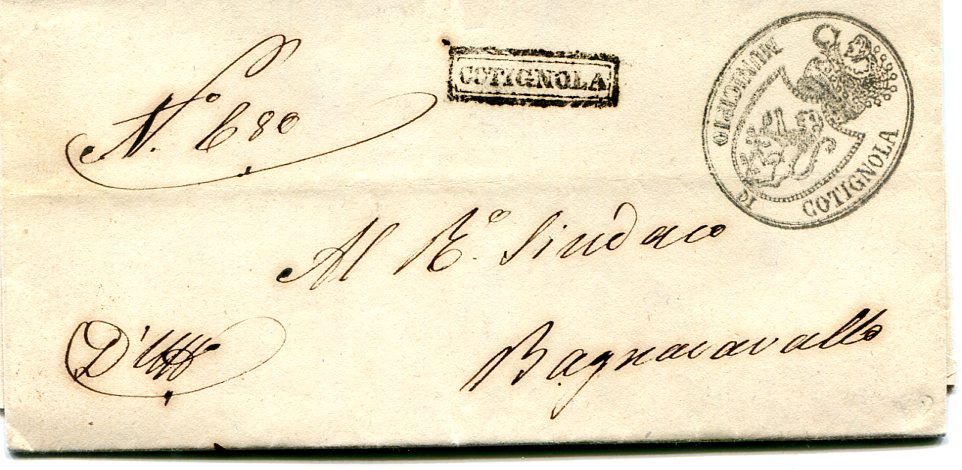 COTIGNOLA
MUNICIPIO DI COTIGNOLA
N.º 680
Al R.º Sindaco
D'Uff
Bagnacavallo